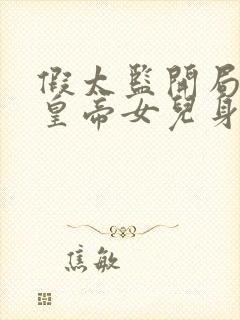 假太監開局
皇帝女兒身
焦敏